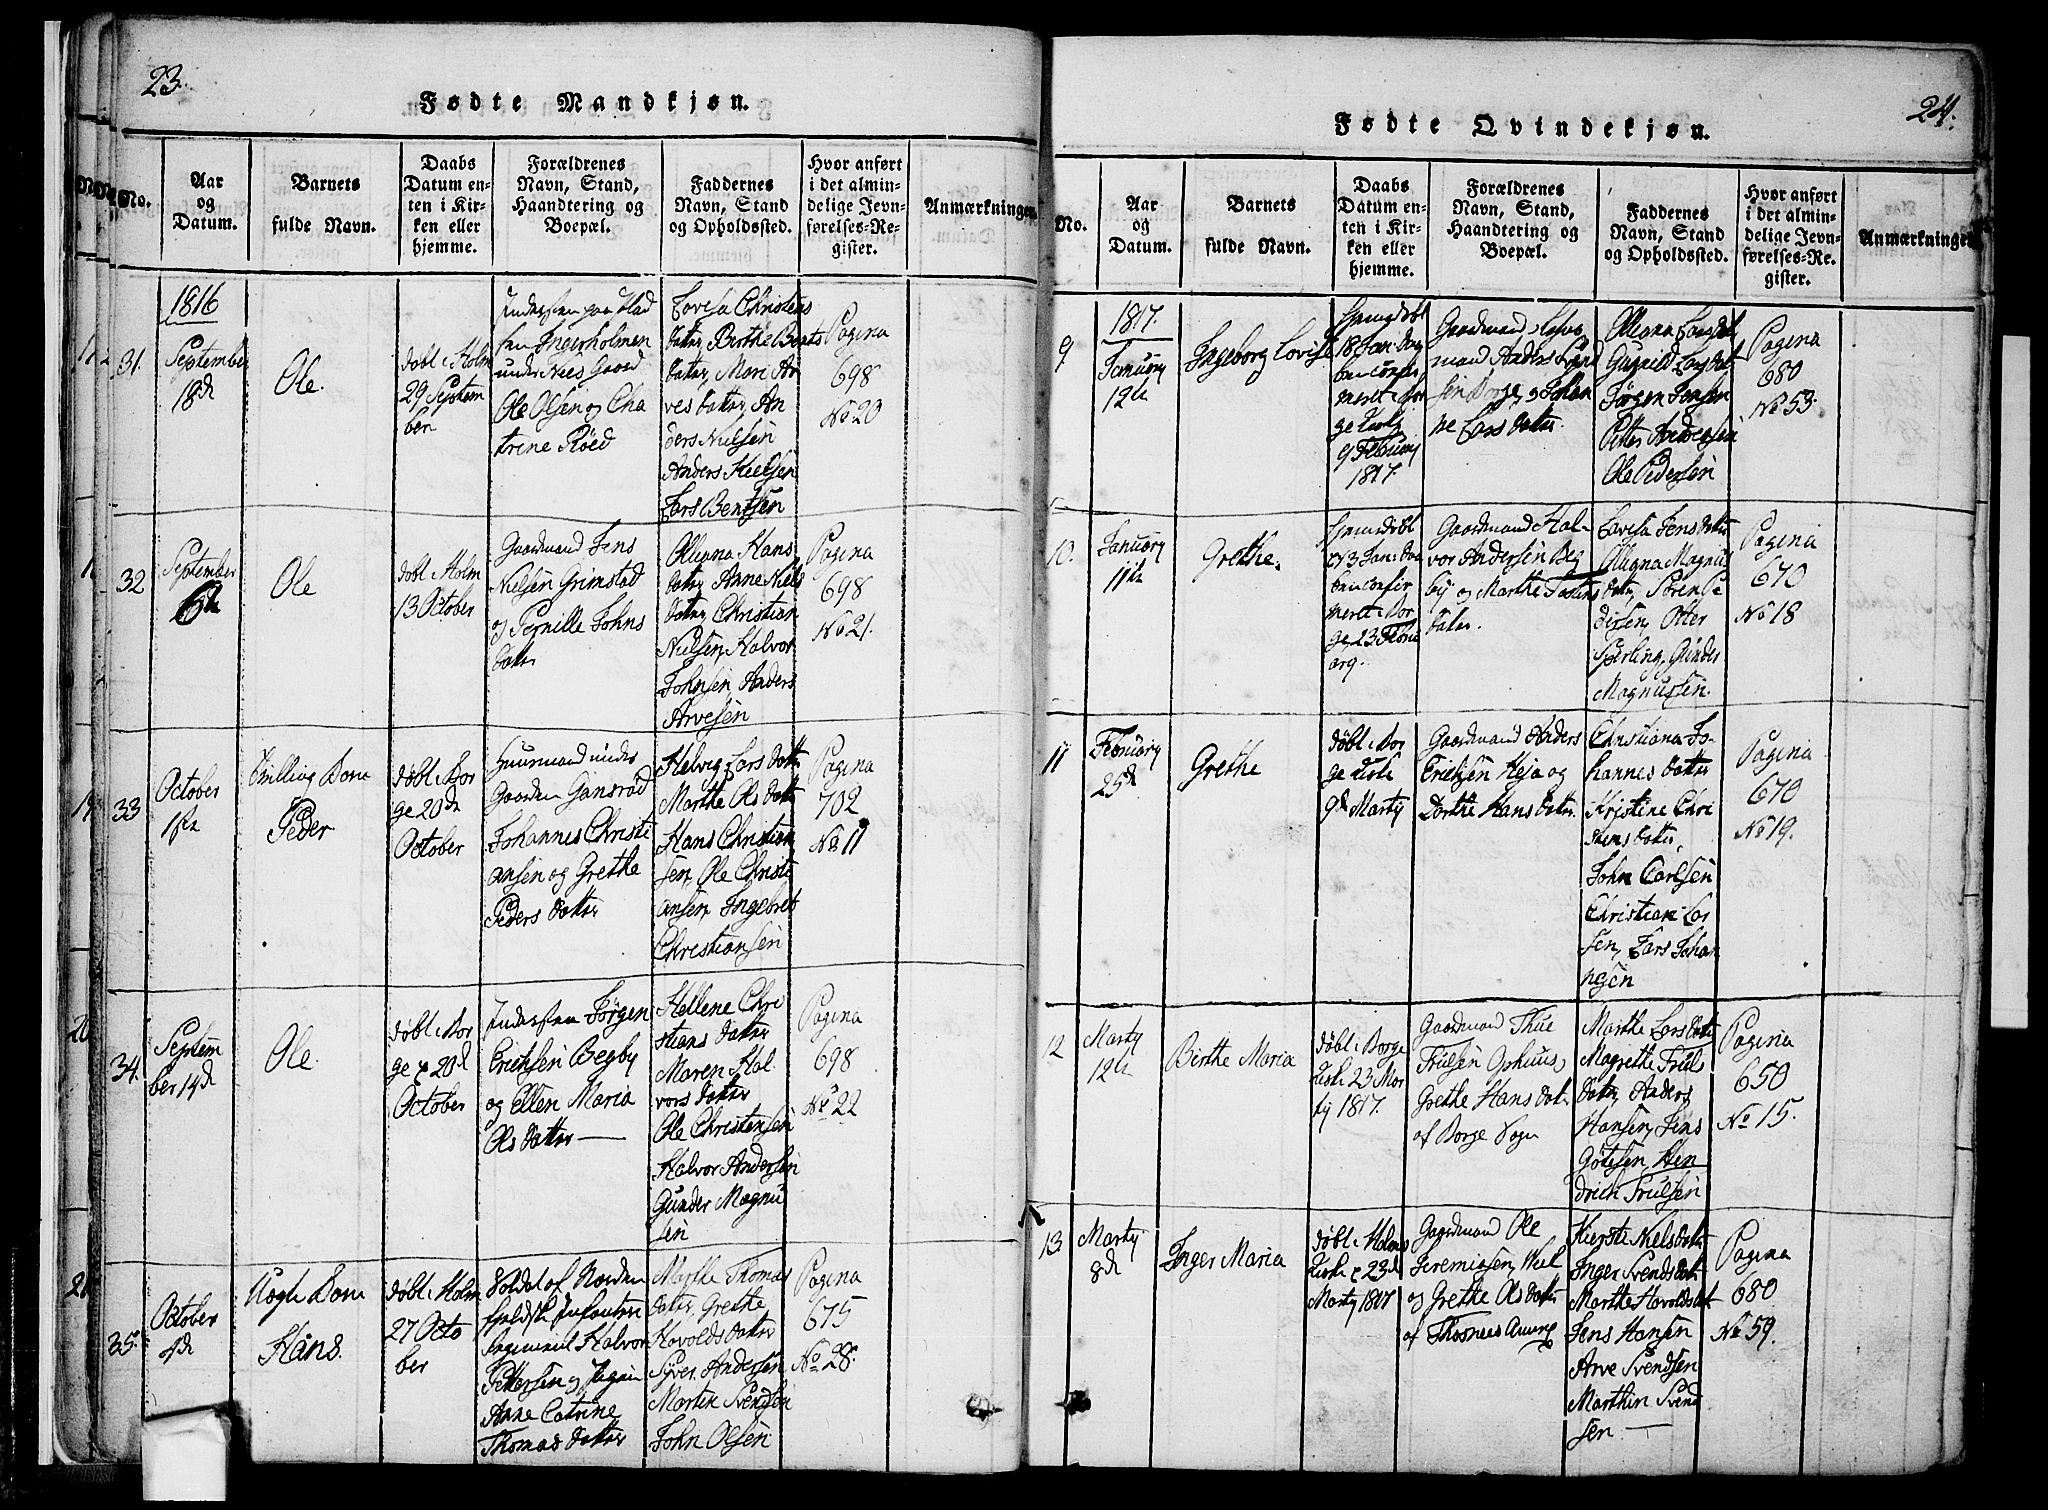 23.
Fødte Mandkjøn.
No.
Aar
og
Datum.
Barnets
fulde Navn.
Daabs
Datum en-
ten i Kir-
ken eller
hjemme.
Forældrenes
Navn, Stand,
Haandtering og
Boepæl.
Faddernes
Navn, Stand
og Opholdssted.
Hvor anført
i det almin-
delige Jevn-
førelses-Re-
gister.
Anmærkninger.
31.
1816
September
18d
Ole.
døbt i Holm
29 Septem
ber
under Nies Gaard
Ole Olsen og Cha
trine Röed
Lovisa Christens
datter, Birthe Bents
datter, Mari Ar
ves datter, An
ders Nielsen
Anders Keelsen
Lars Bentsen
Pagina
698
No 20
32
September
6te
Ole
døbt i Holm
13 October
Gaardmand Jens
Nielsen Grimstad
og Pernille Johns
datter
Olleana Hans
datter, Anne Niels
datter, Christian
Nielsen, Halvor
Johnsen, Anders
Arvesen
Pagina
698
No 21.
33
October
1ste
Tvilling Barn
Peder
døbt i Bor
ge 20de
October
Huusmand under
Gaarden Gansröd
Johannes Christi
ansen og Grethe
Peders datter
Helvig Lars datter
Marthe Ols datter
Hans Christian
sen, Ole Christi
ansen, Ingebret
Christiansen
Pagina
702
No 11
34.
Septem
ber 14d
Ole.
døbt i Bor
ge 20d
October
Jørgen
Erichsen Begby
og Ellen Maria
Ols datter
Hellene Chri
stians datter
Maren Hal
vors datter
Ole Christensen
Halvor Andersen
Gunder Magnu
sen
Pagina
698
No 22
35.
October
4d
Uægte Barn
Hans.
døbt i Holm
27 Octo
ber
Soldat af Norden
fjeldske Infanterie
Regiment Halvor
Pettersen og Pigen
Anne Catrine
Thomas datter
Marthe Thomas
datter, Grethe
Havolds datter
Syver Andersen
Marten Svendsen
John Olsen
Pagina
675
No 28.
24.
Fødte Qvindekjøn.
No.
Aar
og
Datum.
Barnets
fulde Navn.
Daabs
Datum en-
ten i Kir-
ken eller
hjemme.
Forældrenes
Navn, Stand,
Haandtering og
Boepæl.
Faddernes
Navn, Stand
og Opholdssted.
Hvor anført
i det almin-
delige Jevn-
førelses-Re-
gister.
Anmærkninger
9
1817.
Januarj
12te
Ingeborg Lovise
hjemdøbt
18 Jan. Daa
ben confir
meret i Bor
ge Kirke
9 Februarj
1817.
Gaardmand og
mand Anders
sen Borge og Johan
ne Lars datter.
Olleana Lars dat
Gunild Lars dat
Jørgen Jensen
Petter Andersen
Ole Pedersen
Pagina
680
No 53.
10.
Januarj
11te
Grethe.
hjemdøbt
Jan. Daa
ben confir
meret i Bor
ge, 23 Febru
arj.
Gaardmand Hal
vor Andersen Beg
by og Marthe
datter.
Lovisa Jens datter
Magnus
datter, Søren Pe
dersen, Otter
Sperling, Gunder
Magnussen.
Pagina
670
No 18
11
Februarj
25d
Grethe
døbt i Bor
ge Kirke
9d Martij
Gaardmand Anders
Erichsen Heja og
Dorthe Hans datter.
Christiana Jo-
hannes datter
Kristine Chri
stens datter,
John Carlsen
Christian Lar
sen, Lars Johan
nesen
Pagina
670
No 19.
12
Martij
12te
Birthe Maria
døbt i Borge
Kirke 23 Mar
tij 1817.
Gaardmand Thue
Trulsen Ophuus,
Grethe Hans dat
af Borge Sogn
Marthe Lars datter
Magrethe Truls
datter, Anders
Hansen, Jens
Götesen, Hen
drich Trulsen
Pagina
650
No 15.
13
Martij
8d
Inger Maria
døbt i Holms
Kirke 23d
Martij 1817
Gaardmand Ole
Jeremiasen
og Grethe Ols datter
af Thosnees
Kierste Niels datter
Inger Svends dat
Marthe Havolds dat
Jens Hansen
Arve Svendsen
Marthin Svend
sen
Pagina
680
No 59.